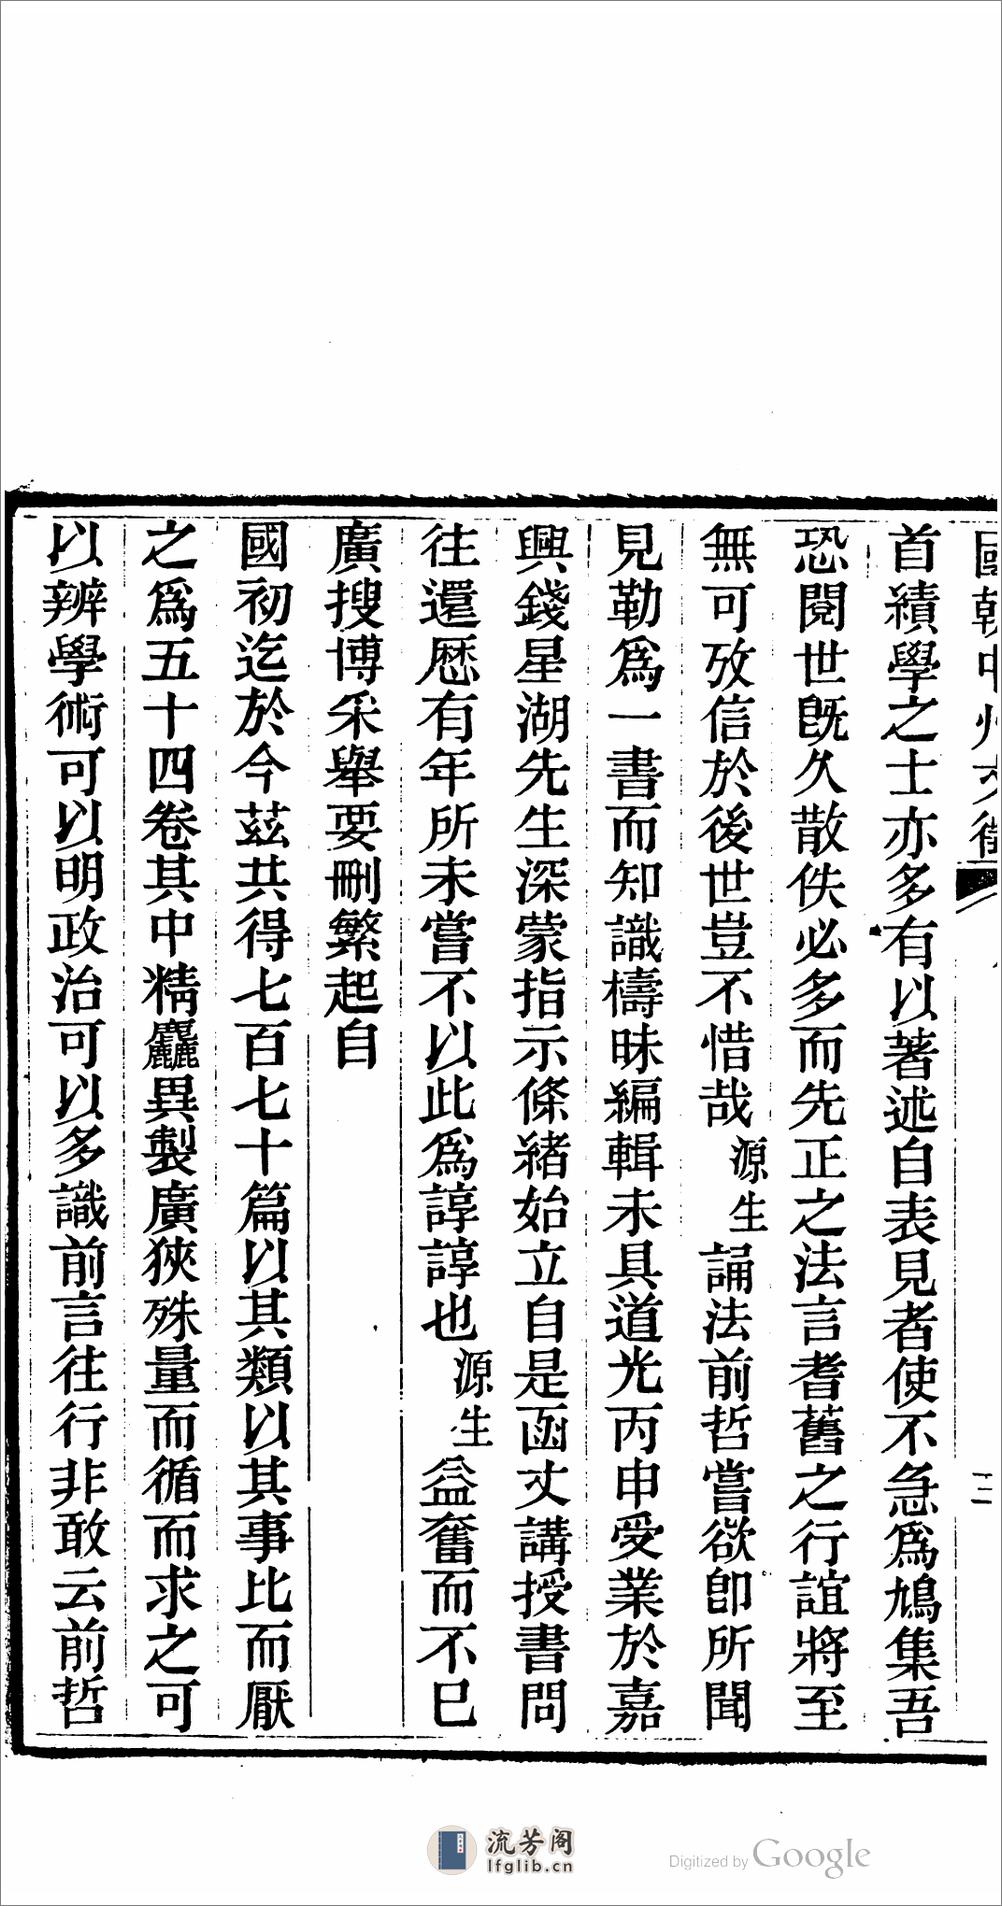 國朝中州文徵
二
首績學之士亦多有以著述自表見者使不急爲鳩集吾
恐閱世旣久散佚必多而先正之法言耆舊之行誼將至
無可攷信於後世豈不惜哉源生誦法前哲嘗欲卽所聞
見勒爲一書而知識檮昧編輯未具道光丙申受業於嘉
興錢星湖先生深蒙指示條緒始立自是函丈講授書問
往還歷有年所未嘗不以此爲諄諄也源生益奮而不已
廣搜博采舉要刪繁起自
國初迄於今茲共得七百七十篇以其類以其事比而厭
之爲五十四卷其中精麤異製廣狹殊量而循而求之可
以辨學術可以明政治可以多識前言往行非敢云前哲
流芳阁
lfglib.cn
Digitized by Google